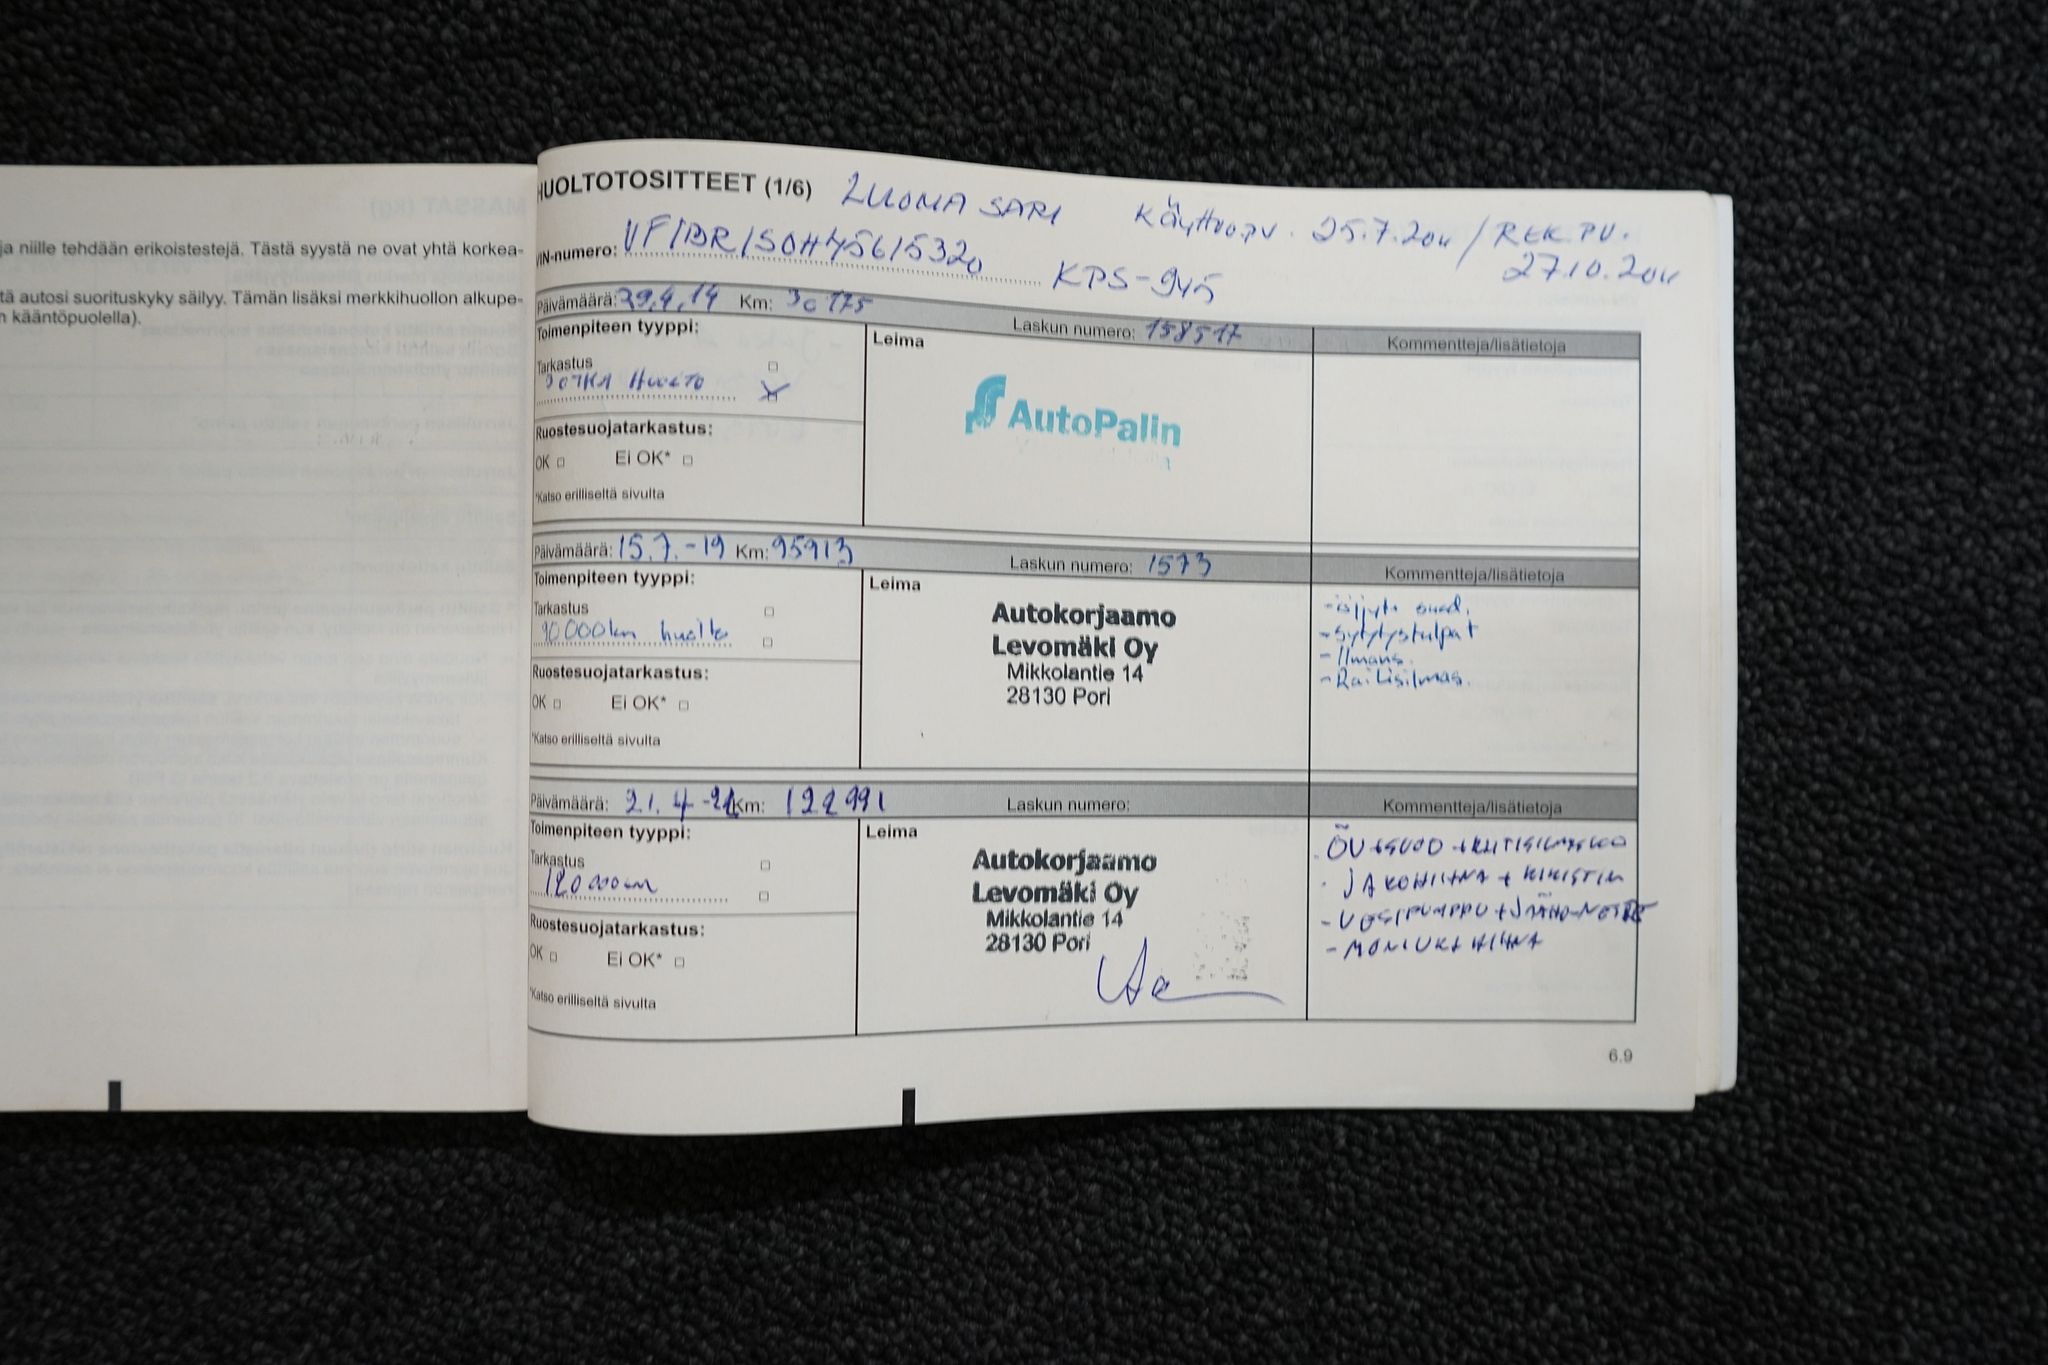 ja niille tehdään erikoistestejä. Tästä syystä ne ovat yhtä korkea-
tä autosi suorituskyky säilyy. Tämän lisäksi merkkihuollon alkupe-
n kääntöpuolella).
HUOLTOTOSITTEET (1/6) LUOMA SARI Käyttö.pv. 25.7.2011 / REK.PV.
27.10.2011
VIN-numero: VF1BR1S0H45615320 KPS-945
Päivämäärä: 29.4.14 Km: 30175 Laskun numero: 158517 Kommentteja/lisätietoja
Toimenpiteen tyyppi: Leima
Tarkastus
30TKM HUOLTO
AutoPalin
Ruostesuojatarkastus:
OK Ei OK*
*Katso erilliseltä sivulta
Päivämäärä: 15.7.-19 Km: 95913 Laskun numero: 1573 Kommentteja/lisätietoja
Toimenpiteen tyyppi: Leima
Tarkastus
90 000km huolto
Autokorjaamo
Levomäki Oy
Mikkolantie 14
28130 Pori
- öljyt+ suod.
- sytytystulpat
- Ilmans.
- Raitisilmas.
Ruostesuojatarkastus:
OK Ei OK*
*Katso erilliseltä sivulta
Päivämäärä: 21.4-21 Km: 122991 Laskun numero: Kommentteja/lisätietoja
Toimenpiteen tyyppi: Leima
Tarkastus
120 000km
Autokorjaamo
Levomäki Oy
Mikkolantie 14
28130 Pori
- JAKOHIHNA + KIRISTIN
- VESIPUMPPU + JÄÄHD-NESTE
- MONIURAHIHNA
Ruostesuojatarkastus:
OK Ei OK*
*Katso erilliseltä sivulta
6.9